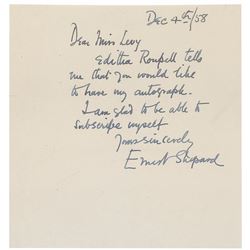 Dec 4th/58
Dear Miss Levy
Edittia Roupell tells
me that you would like
to have my autograph.
I am glad to be able to
subscribe myself
Yours sincerely
Ernest Shepard